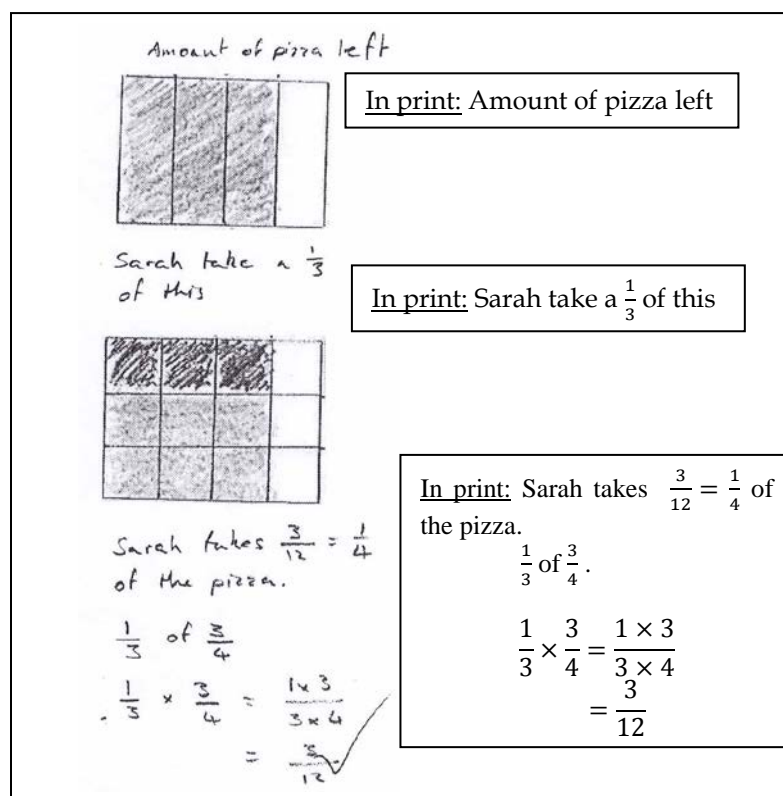 Amount of pizza left
In print: Amount of pizza left
Sarah take a 1/3
of this
In print: Sarah take a 1/3 of this
Sarah takes 3/12 = 1/4
of the pizza.
1/3 of 3/4
1/3 × 3/4 = 1×3/3×4
= 3/12
In print: Sarah takes 3/12 = 1/4 of
the pizza.
1/3 of 3/4 .
1/3 × 3/4 = 1 × 3/3 × 4
= 3/12